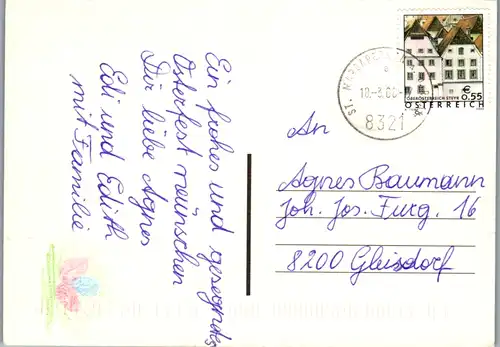 Ein frohes und gesegnetes
Osterfest wünschen
Dir liebe Agnes
Edi und Edith
mit Familie
€ 0.55
OBERÖSTERREICH STEYR
ÖSTERREICH
ST.
8321
An
Agnes Baumann
Joh. Jos. Furg. 16
8200 Gleisdorf